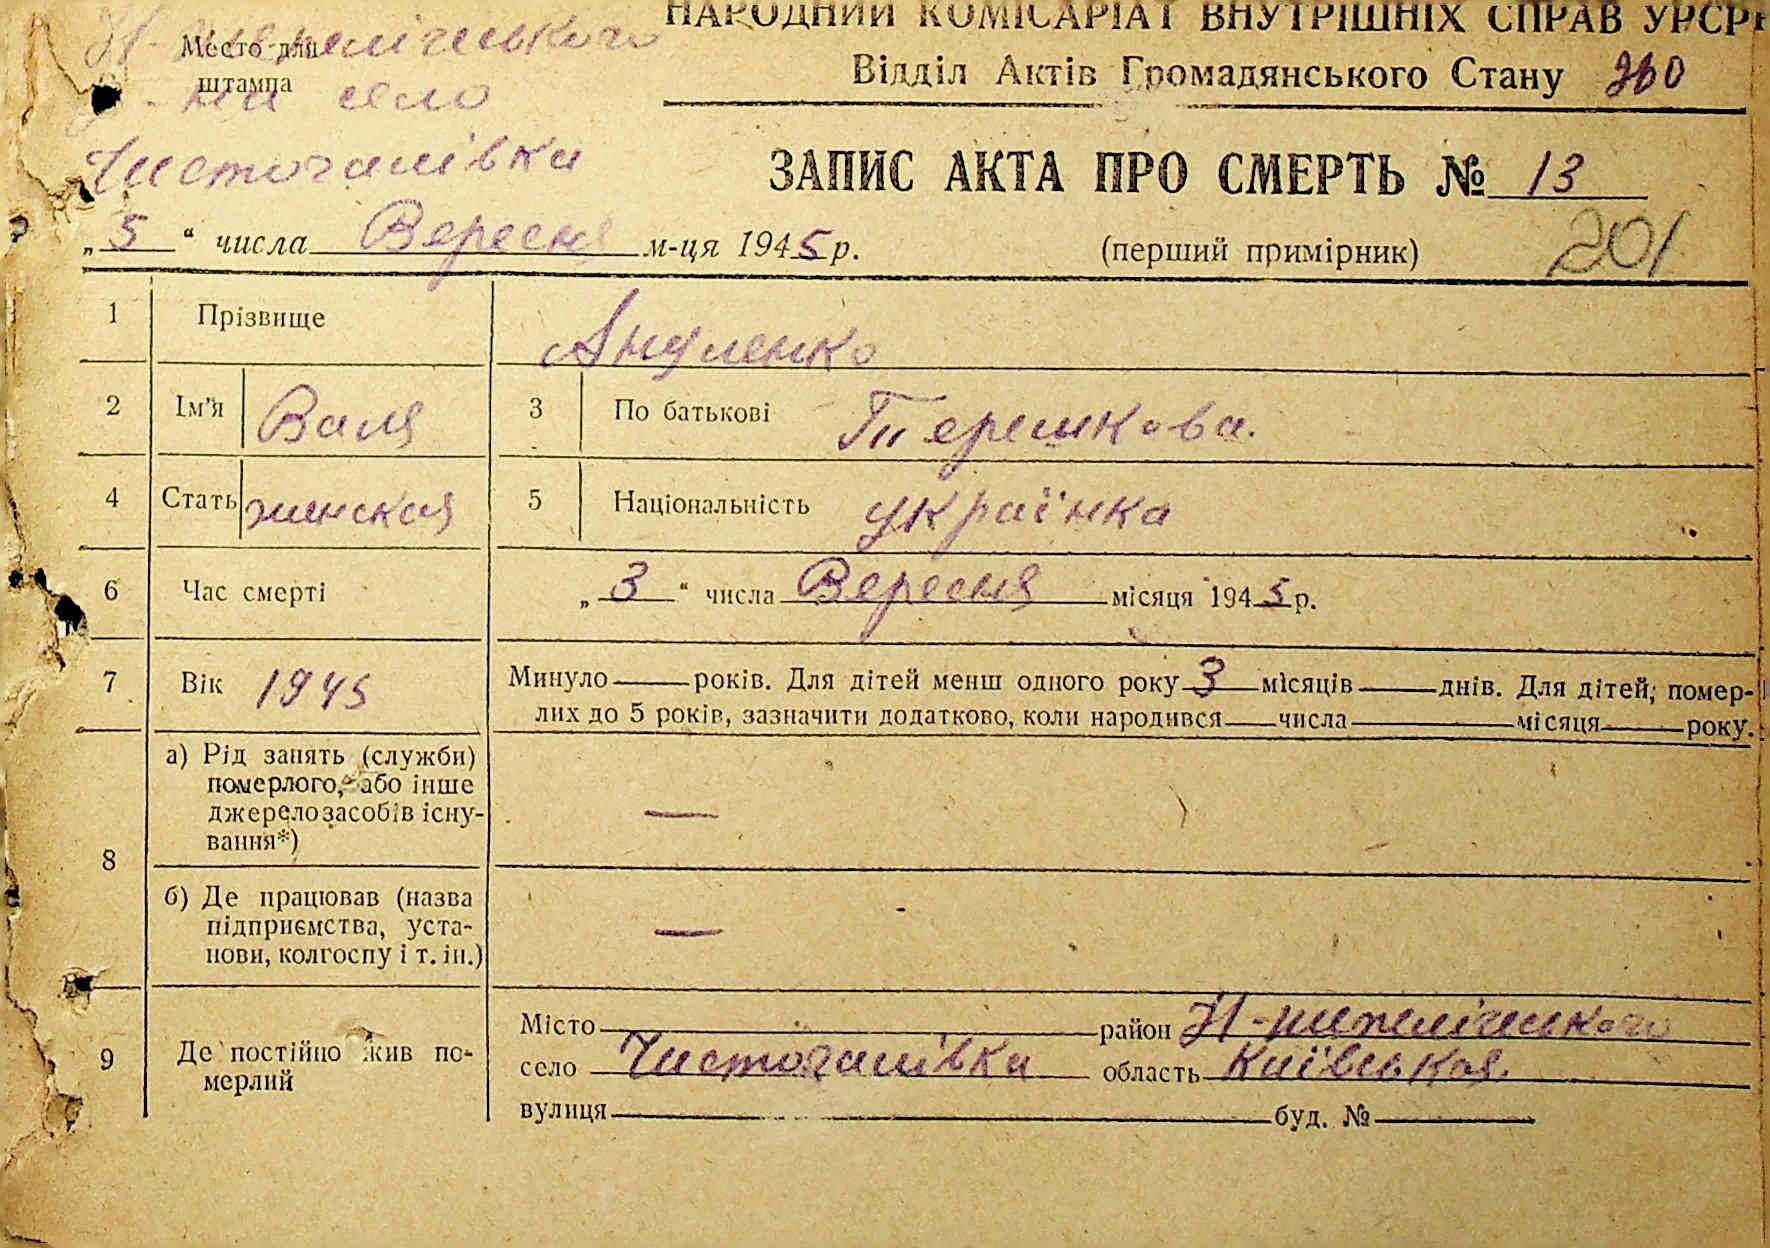 НАРОДНИЙ КОМІСАРІАТ ВНУТРІШНІХ СПРАВ УРСР
Відділ Актів Громадянського Стану 260
Место для
штампа
Н-шепелічського
р-на село
Чистогалівка
ЗАПИС АКТА ПРО СМЕРТЬ № 13
„5“ числа Вересня м-ця 1945 р.
(перший примірник) 201
1 Прізвище
2 Ім'я Валя 3 По батькові Терешкова.
4 Стать женская 5 Національність українка
6 Час смерті „3“ числа Вересня місяця 1945 р.
7 Вік 1945 Минуло — років. Для дітей менш одного року 3 місяців — днів. Для дітей, помер-
лих до 5 років, зазначити додатково, коли народився — числа — місяця — року.
8 а) Рід занять (служби)
померлого, або інше
джерело засобів існу-
вання*) —
б) Де працював (назва
підприємства, уста-
нови, колгоспу і т. ін.) —
9 Де постійно жив по-
мерлий
Місто район Н-шепелічського
село Чистогалівка область Київськая
вулиця буд. №